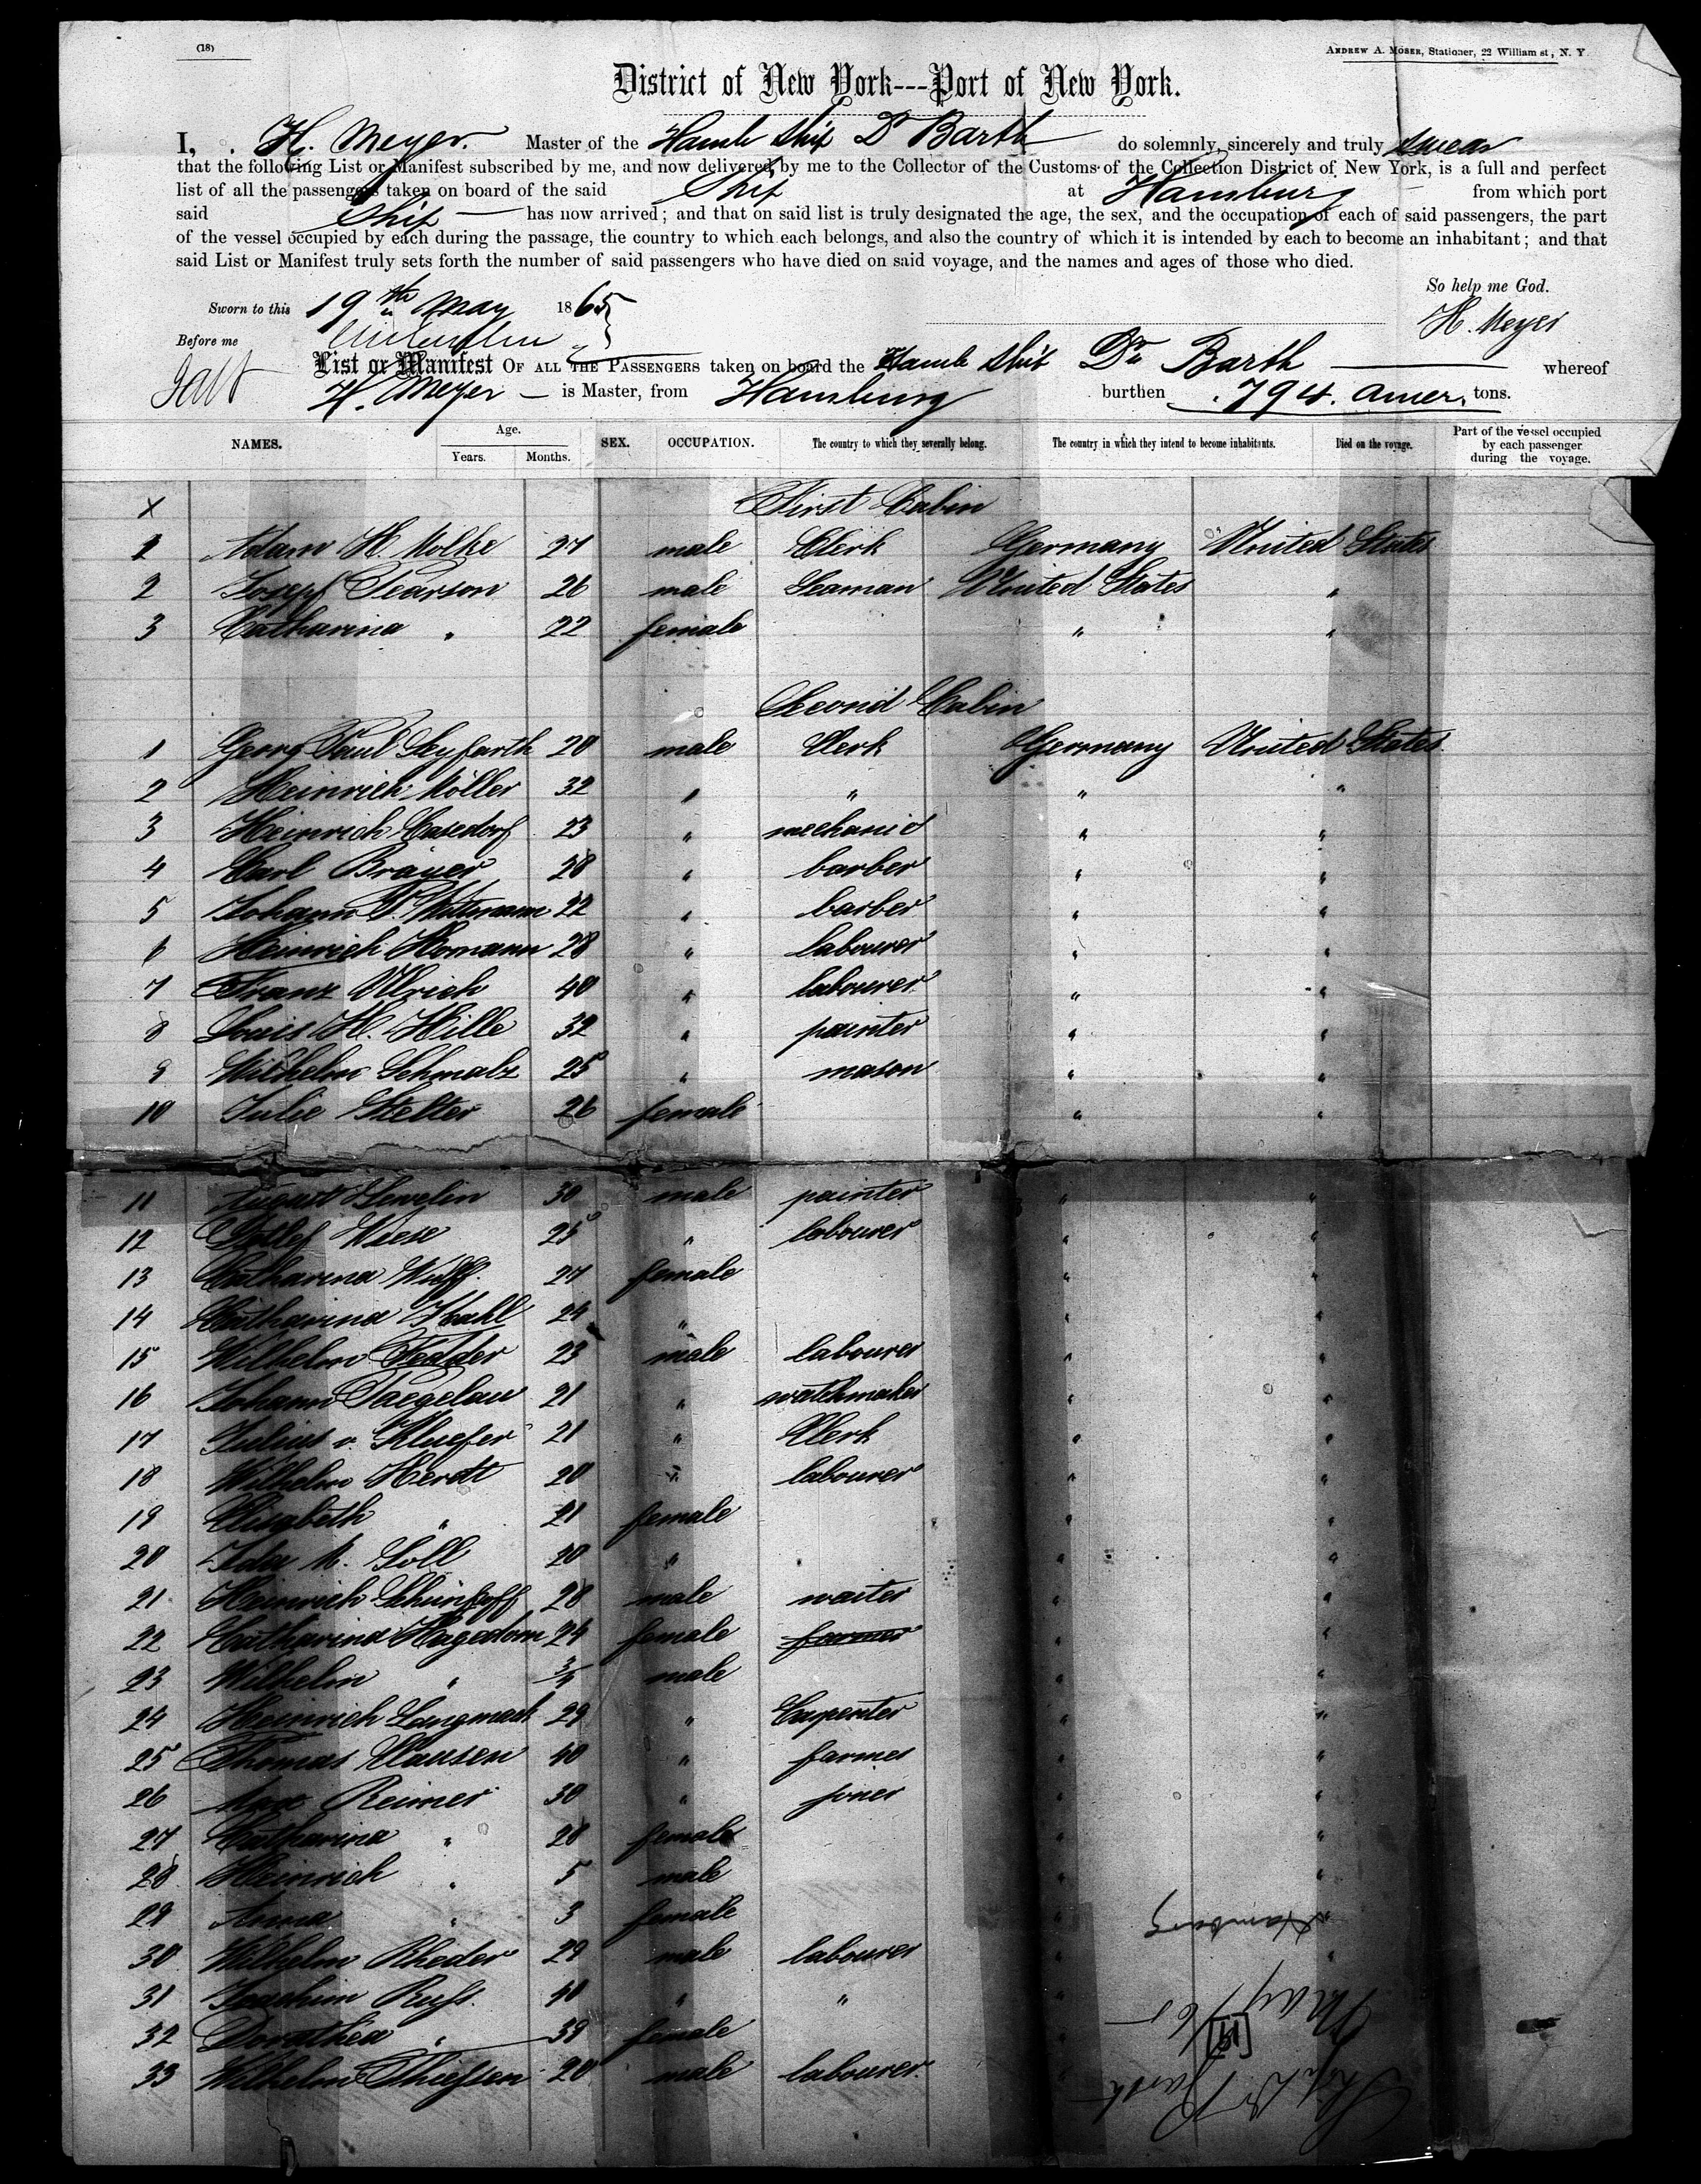 (18)
ANDREW A. MOSER, Stationer, 22 William st, N. Y.
District of New York---Port of New York.
I, H. Meyer. Master of the Hamb ship Dr Barth do solemnly, sincerely and truly swear
that the following List or Manifest subscribed by me, and now delivered by me to the Collector of the Customs of the Collection District of New York, is a full and perfect
list of all the passengers taken on board of the said Ship at Hamburg from which port
said Ship has now arrived; and that on said list is truly designated the age, the sex, and the occupation of each of said passengers, the part
of the vessel occupied by each during the passage, the country to which each belongs, and also the country of which it is intended by each to become an inhabitant; and that
said List or Manifest truly sets forth the number of said passengers who have died on said voyage, and the names and ages of those who died.
So help me God.
Sworn to this 19th May 1865
H. Meyer
Before me
List or Manifest OF ALL THE PASSENGERS taken on board the Hamb Ship Dr. Barth whereof
H. Meyer is Master, from Hamburg burthen 794. amer. tons.
NAMES. Age. Years. Months. SEX. OCCUPATION. The country to which they severally belong. The country in which they intend to become inhabitants. Died on the voyage. Part of the vessel occupied by each passenger during the voyage.
x First Cabin
1 Adam H. Nolke 27 male Clerk Germany United States
2 Josepf Pearson 26 male Seaman United States "
3 Catharina " 22 female " "
Second Cabin
1 Georg Paul Seyfarth 20 male Clerk Germany United States
2 Heinrich Möller 32 " " " "
3 Heinrich Casedorf 23 " mechanic " "
4 Carl Brauer 28 " barber " "
5 Johann 22 " barber " "
6 Heinrich Homann 28 " labourer " "
7 Franz Ulrich 40 " labourer " "
8 Louis H. Hille 32 " painter " "
9 Wilhelm Schmalz 25 " mason " "
10 Julie Stelter 26 female " "
11 August 30 male painter " "
12 Detlef Wiese 25 " labourer " "
13 Catharina Wulff 27 female " "
14 Catharina Kahl 24 " " "
15 Wilhelm Fedder 23 male labourer " "
16 Johann Paegelau 21 " watchmaker " "
17 Julius v. Kluefer 21 " Clerk " "
18 Wilhelm Herdt 20 " labourer " "
19 Elisabeth " 21 female " "
20 Ida M. Söll 20 " " "
21 Heinrich 28 male waiter " "
22 Catharina Hagedorn 24 female farmer " "
23 Wilhelm " 3/4 male " "
24 Heinrich Langmack 29 " Carpenter " "
25 Thomas Clausen 40 " farmer " "
26 Max Reimer 30 " joiner " "
27 Catharina " 28 female " "
28 Heinrich " 5 male " "
29 Anna " 3 female " "
30 Wilhelm Rheder 29 male labourer " "
31 Joachim Rufs. 40 " " " "
32 Dorothea " 39 female " "
33 Wilhelm Thiefsen 20 male labourer. " "
Hamburg
May 19/65
Ship Dr Barth